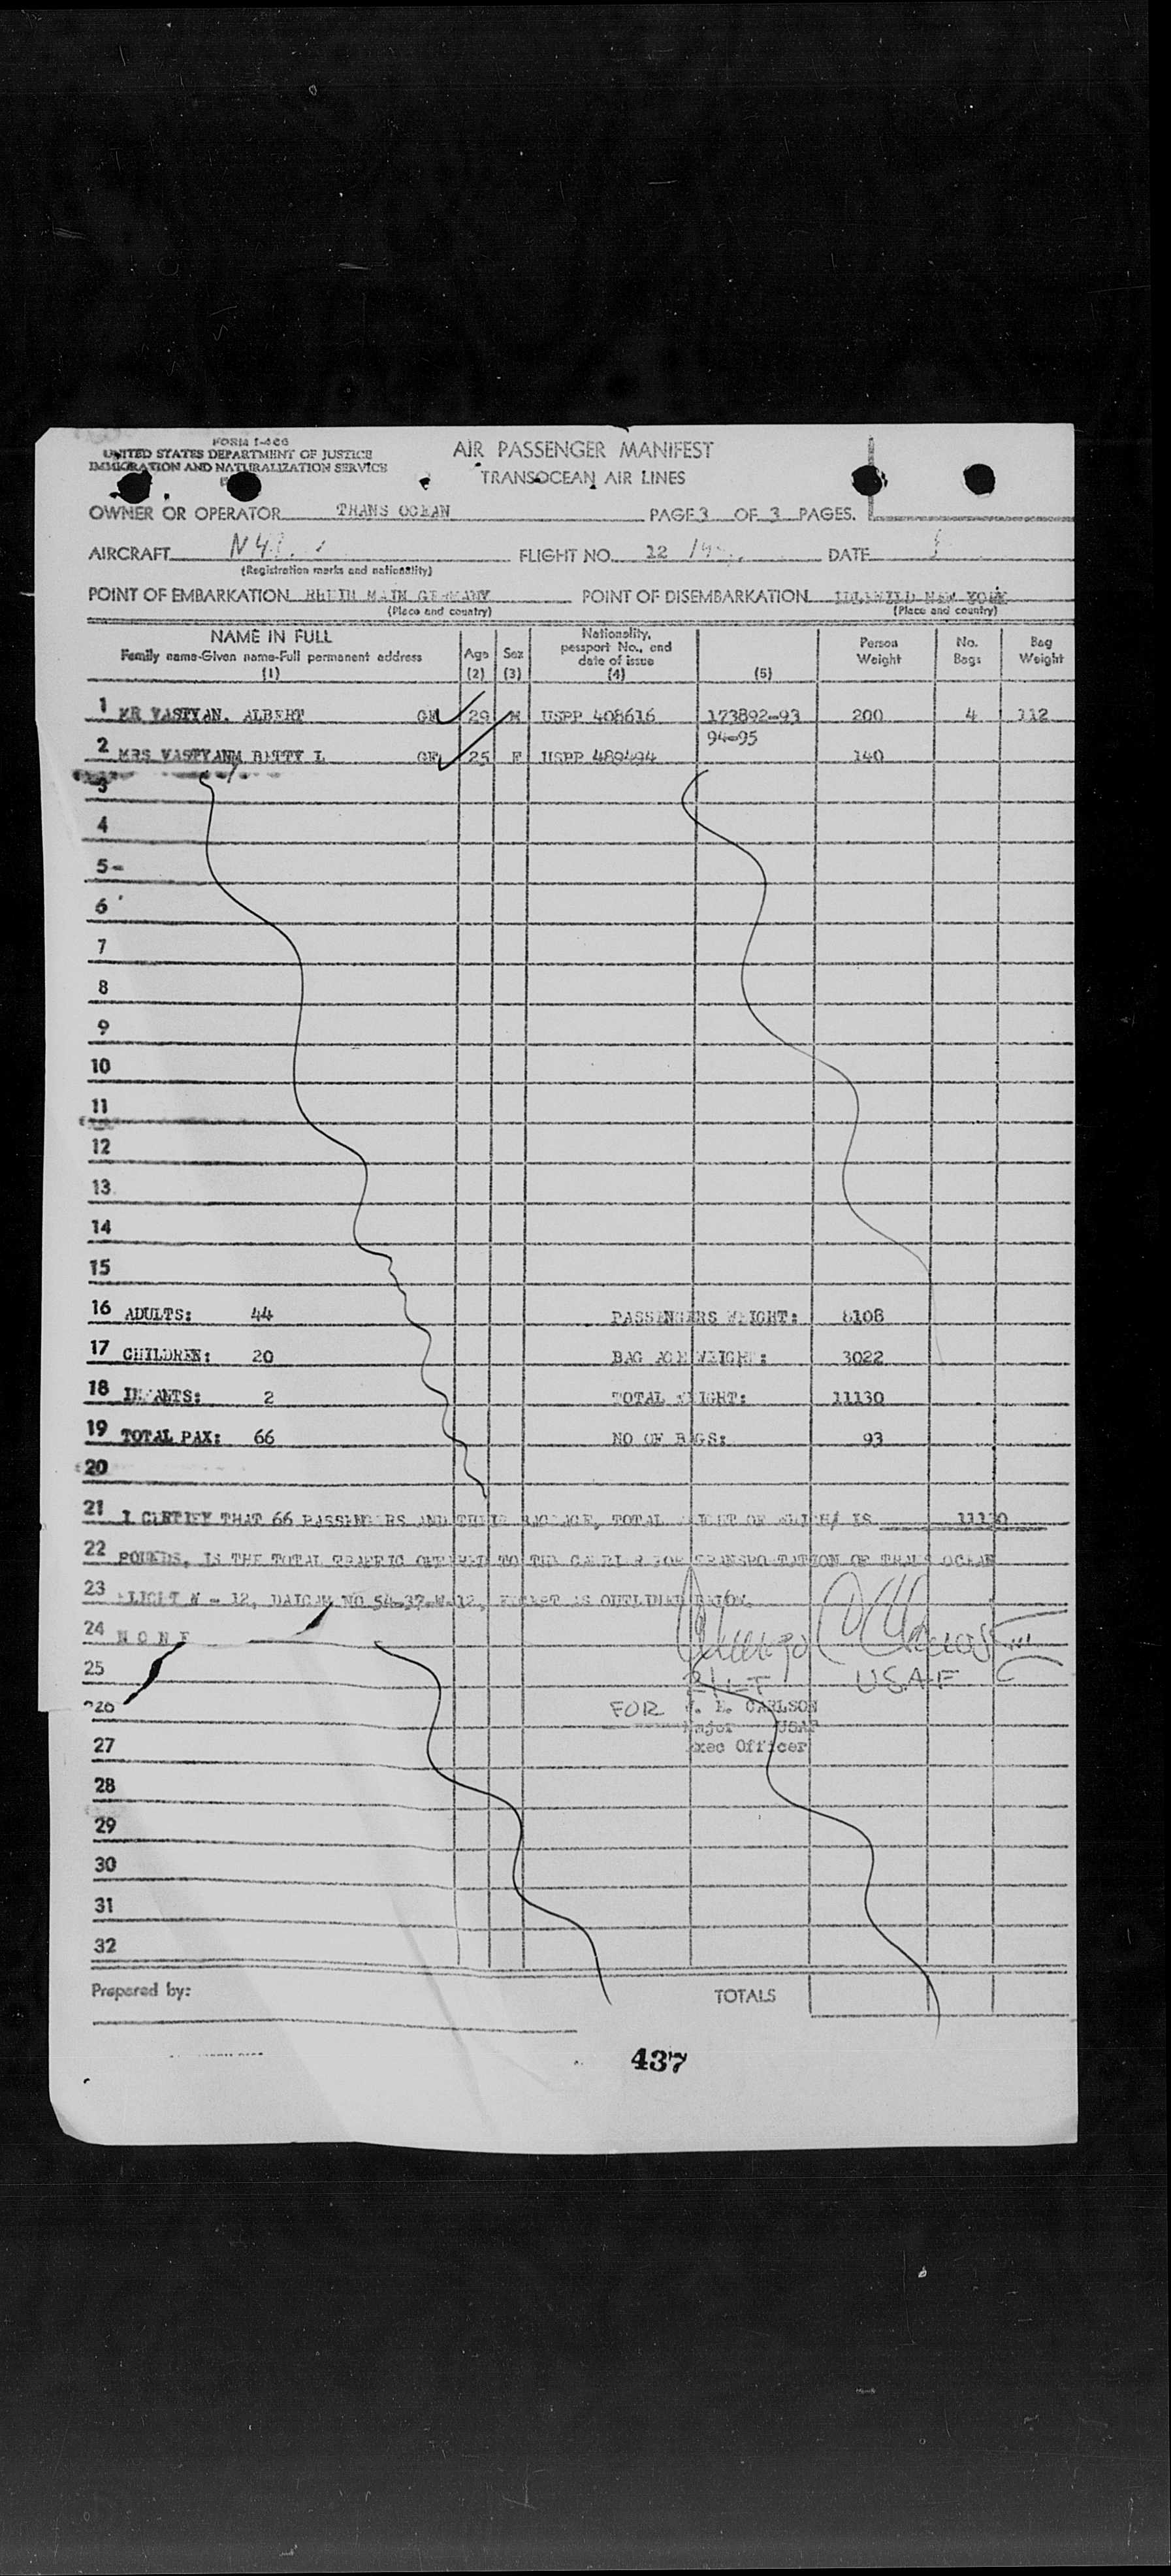 FORM I-466
UNITED STATES DEPARTMENT OF JUSTICE
IMMIGRATION AND NATURALIZATION SERVICE
AIR PASSENGER MANIFEST
TRANSOCEAN AIR LINES
OWNER OR OPERATOR TRANS OCEAN PAGE 3 OF 3 PAGES.
AIRCRAFT FLIGHT NO. 12 DATE
(Registration marks and nationality)
POINT OF EMBARKATION RHEIN MAIN GERMANY POINT OF DISEMBARKATION IDLEWILD NEW YORK
(Place and country) (Place and country)
NAME IN FULL
Family name-Given name-Full permanent address
(1)
Age
(2)
Sex
(3)
Nationality,
passport No., and
date of issue
(4)
(5)
Person
Weight
No.
Bags
Bag
Weight
1 MR VASTYAN. ALBERT 29 M USPP 408616 173892-93 200 4 112
94-95
2 MRS VASTYAN BETTY L 25 F USPP 489494 140
3
4
5
6
7
8
9
10
11
12
13
14
15
16 ADULTS: 44 PASSENGERS WEIGHT: 8108
17 CHILDREN: 20 BAGGAGE WEIGHT: 3022
18 INFANTS: 2 TOTAL WEIGHT: 11130
19 TOTAL PAX: 66 NO OF BAGS: 93
20
21 I CERTIFY THAT 66 PASSENGERS AND THEIR BAGGAGE, TOTAL WEIGHT OF WHICH IS 11130
22 POUNDS, IS THE TOTAL TRAFFIC OFFERED TO THE CARRIER FOR TRANSPORTATION OF TRANS OCEAN
23 FLIGHT N - 12, DAICAM NO 54-37-N-12, EXCEPT AS OUTLINED BELOW.
24 N O N E
25
2/LT USAF
26 FOR E. CARLSON
Major USAF
27 Exec Officer
28
29
30
31
32
Prepared by: TOTALS
437